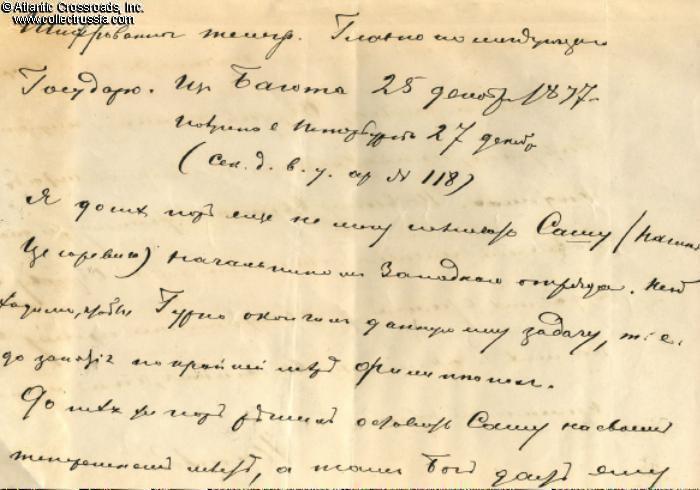 © Atlantic Crossroads, Inc.
www.collectrussia.com
телегр. Главнокомандующаго
Государю. Изъ Богота 25 декабр. 1877.
Петербургѣ 27 декаб
(Сек. д. в. у. ар № 118)
Я до сихъ поръ еще не могу Сашу (
Цесаревича) начальникомъ Западнаго отряда. Необ
ходимо, чтобы Гурко окончилъ данную ему задачу, т. е.
до занятія по крайней мѣрѣ Филиппополя.
До тѣхъ же поръ рѣшилъ оставить Сашу на своемъ
теперешнемъ мѣстѣ, а тамъ Богъ дастъ ему